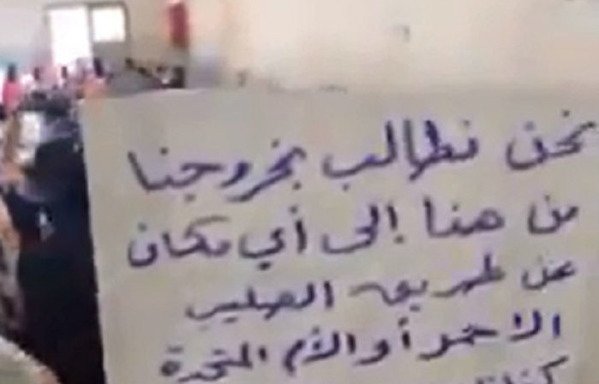 نحن نطالب بخروجنا
من هنا إلى أي مكان
عن طريق الصليب
الاحمر أو الأمم المتحدة